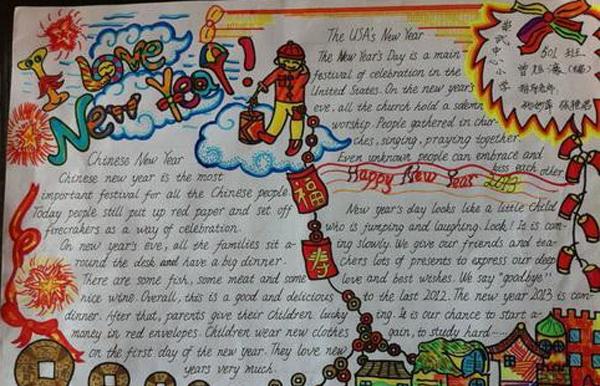 I Love
New Year!
The USA's New Year
The New Year's Day is a main
festival of celebration in the
United States. On the new year's
eve, all the church hold a solemn
worship. People gathered in chur-
ches, singing, praying together.
Even unknown people can embrace and
kiss each other
Happy New Year 2013
中心小学
501 班
Chinese New Year
Chinese new year is the most
important festival for all the Chinese people
Today people still put up red paper and set off
firecrakers as a way of celebration.
On new year's eve, all the families sit a-
round the desk and have a big dinner.
There are some fish, some meat and some
nice wine. Overall, this is a good and delicious
dinner. After that, parents give their children lucky
money in red envelopes. Children wear new clothes
on the first day of the new year. They love new
years very much.
福
寿
New year's day looks like a little child
who is jumping and laughing. Look! It is com-
ing slowly. We give our friends and tea-
chers lots of presents to express our deep
love and best wishes. We say "goodbye"
to the last 2012. The new year 2013 is com-
ing. It is our chance to start a-
gain, to study hard......